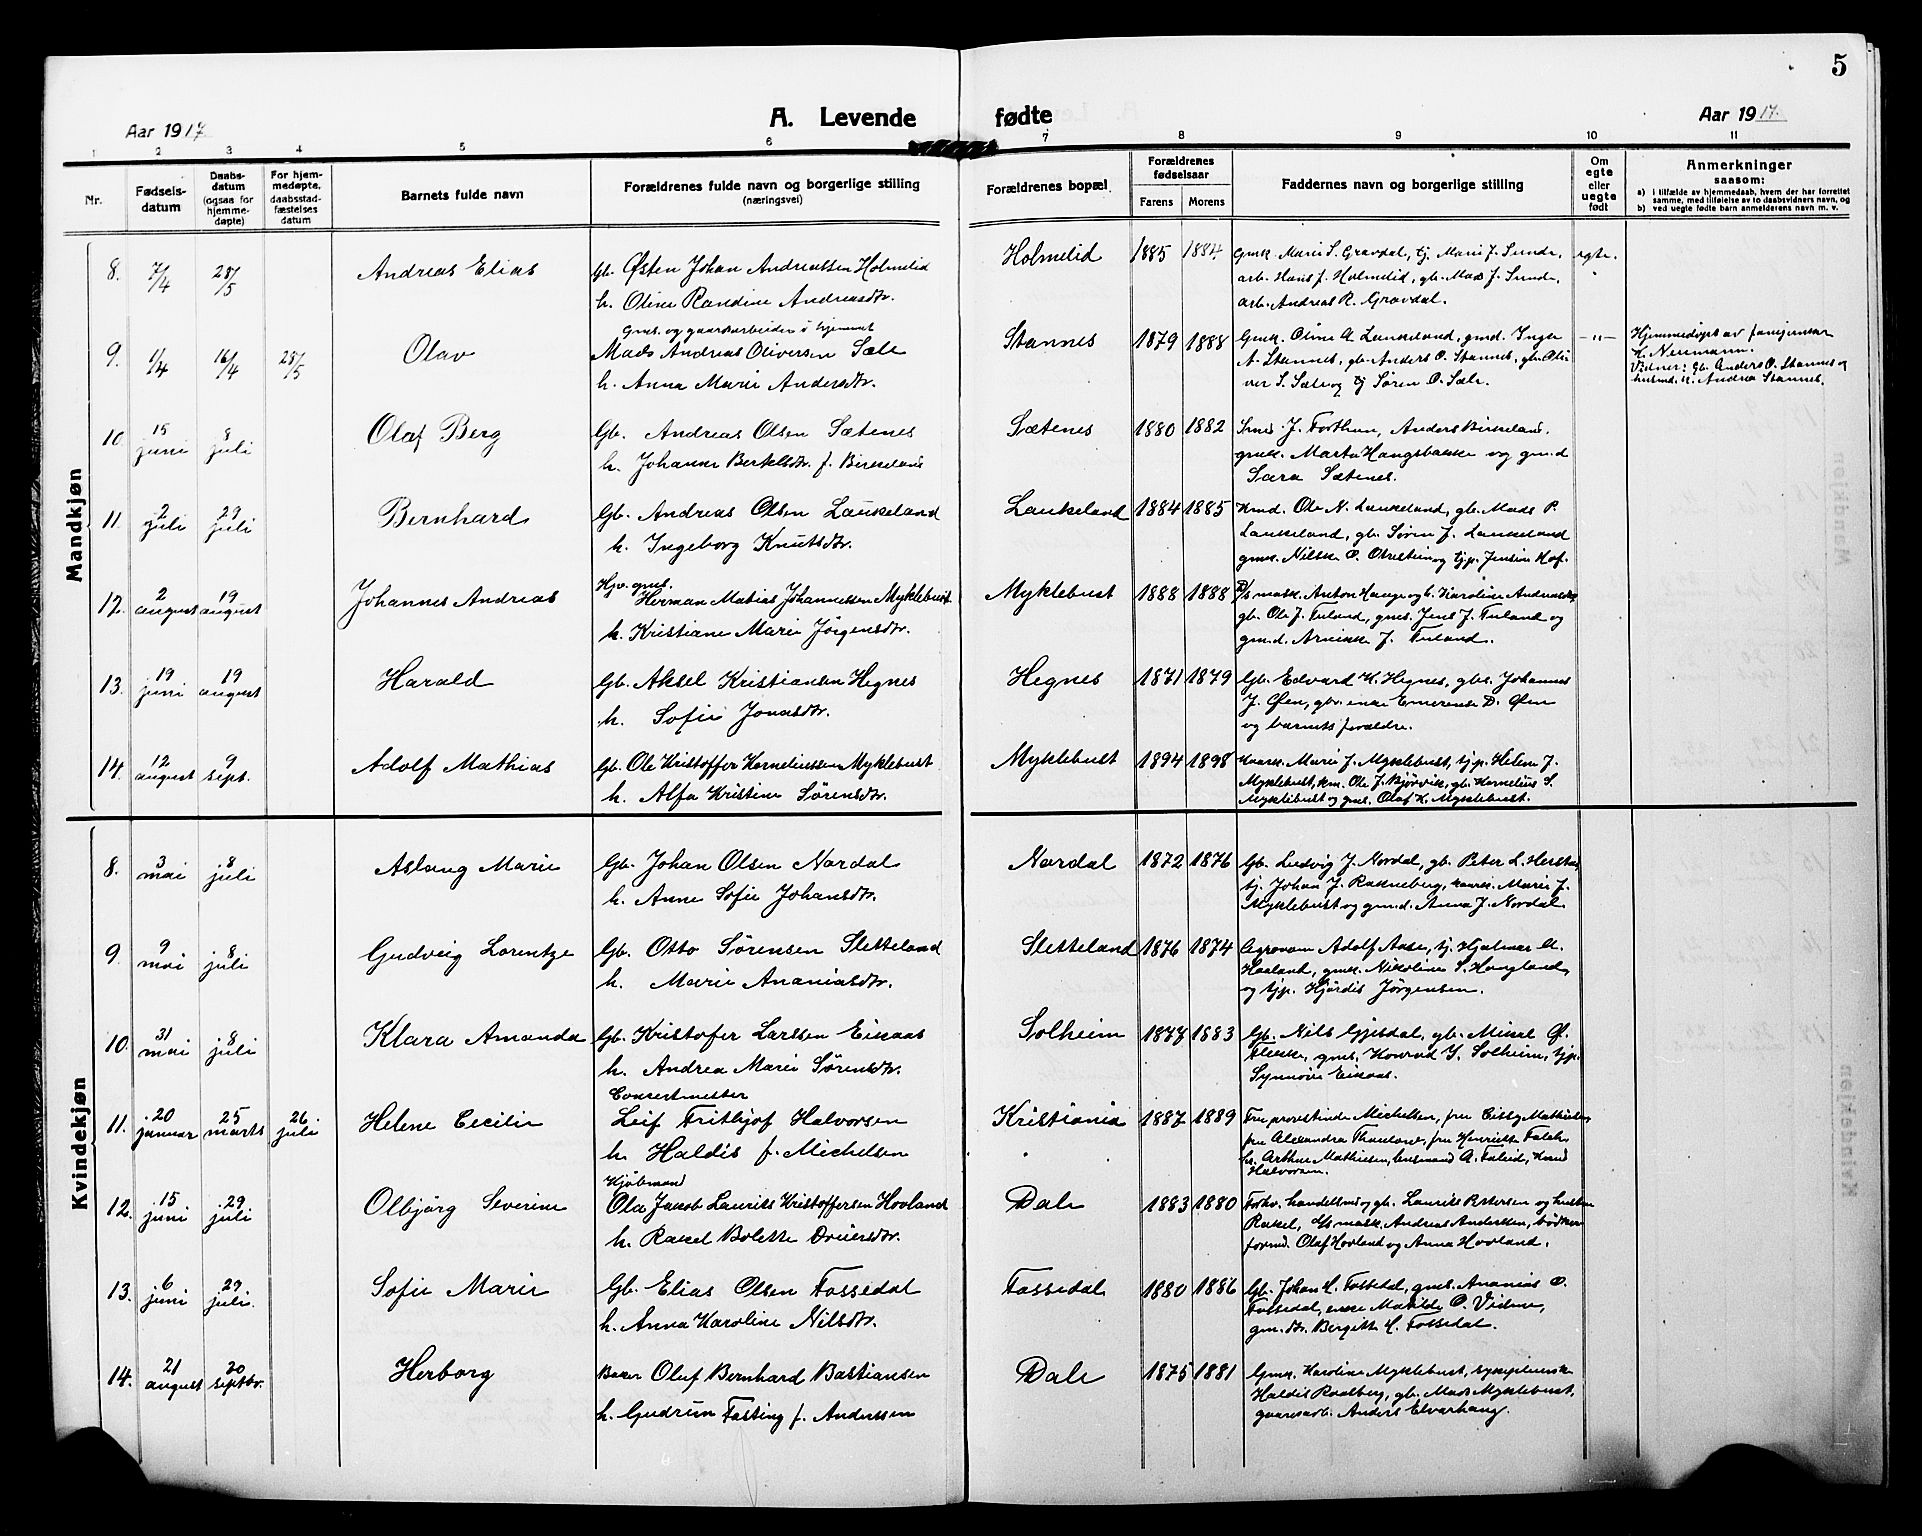 5
Aar 1917 A. Levende fødte Aar 1917
1 2 3 4 5 6 7 8 9 10 11
Nr. Fødselsdatum Daabsdatum (ogsaa for hjemmedøpte) For hjemmedøpte, daabsstadfæstelses datum Barnets fulde navn Forældrenes fulde navn og borgerlige stilling (næringsvei) Forældrenes bopæl Forældrenes fødselsaar Farens Morens Faddernes navn og borgerlige stilling Om egte eller uegte født Anmerkninger saasom:
a) i tilfælde av hjemmedaab, hvem der har forrettet samme, med tilføielse av to daabsvidners navn, og
b) ved uegte fødte barn anmelderens navn m. v.
Mandkjøn
8. 7/4 28/5 Andreas Elias Gb. Østen Johan Andreassen Holmelid Holmelid 1885 1884 Gmk. Marie S. Gravdal, tj. Marie J. Sunde, egte.
arb. Hans J. Holmelid, gb. Mads J. Sunde,
h. Oline Randine Andreasdtr. arb. Andreas R. Gravdal.
9. 1/4 16/4 28/5 Olav Gms. og gaardsarbeider i hjemmet
Mads Andreas Oliversen Sæle Stannes 1879 1888 Gmk. Oline A. Laukeland, gmd. Inger -"- Hjemmedøpt av
A. Stannes, gb. Anders O. Stannes, gb. Oli- K. Neumann.
h. Anna Marie Andersdtr. ver S. Sæle og tj Søren O. Sæle. Vidner: Gb. Anders O. Stannes og
Andrea Stannes.
10. 15 juni 8 juli Olaf Berg Gb. Andreas Olsen Sætenes Sætenes 1880 1882 Smed J. Forthun, Anders Birkeland,
h. Johanne Bertelsdtr. f. Birkeland gmk. Marta Hangsbakke og gm.d
Sara Sætenes.
11. 2 juli 29 juli Bernhard Gb. Andreas Olsen Laukeland Laukeland 1884 1885 Kmd. Ole N. Laukeland, gb. Mads P.
h. Ingeborg Knutsdtr. Laukeland, gb. Søren J. Laukeland
og tjp. Jensine Hof.
12. 2 august 19 august Johannes Andreas Hjv. gms.
Herman Matias Johannessen Myklebust Myklebust 1888 1888 D/s mask. Anton Hauge og h. Karoline
h. Kristiane Marie Jørgensdtr. gb. Ole J. Tuland, gms. Jens J. Tuland og
gm.d. J. Tuland.
13. 19 juni 19 august Harald Gb. Aksel Kristiansen Hegnes Hegnes 1871 1879 Gb. Edvard K. Hegnes, gbs. Johannes
h. Sofie Jonasdtr. J. Øen, gbr. enke Emerense D. Øen
og barnets forældre.
14. 12 august 9 sept. Adolf Mathias Gb. Ole Kristoffer Korneliussen Myklebust Myklebust 1894 1898 Kaark. Marie J. Myklebust, tjp. Helene J.
Myklebust, km. Ole J. Bjørvik, gb. Kornelius S.
h. Alfa Kristine Sørensdtr. Myklebust og gms. Olaf K. Myklebust.
Kvindekjøn
8. 3 mai 8 juli Aslaug Marie Gb. Johan Olsen Nordal Nordal 1872 1876 Gb. Ludvig J. Nordal, gb. Peter L.
h. Anne Sofie Johansdtr. tj. Johan J. Rakneberg, kaark. Marie J.
Myklebust og gm.d. Anna J. Nordal.
9. 9 mai 8 juli Gudveig Lorentze Gb. Otto Sørensen Sletteland Sletteland 1876 1874 Agronom Adolf Aase, tj. Hjalmar A.
h. Marie Ananiasdtr. Haaland, gmk. Nikoline S. Haugland,
og tjp. Hjørdis Jørgensen.
10. 31 mai 8 juli Klara Amanda Gb. Kristofer Larssen Eikaas Solheim 1877 1883 Gb. Nils Gjesdal, gb. Mikal Ø.
h. Andrea Marie Sørensdtr. Flekke, gms. Konrad Y. Solheim, tjp.
Synnøve Eikaas.
11. 20 januar 25 marts 26 juli Helene Cecilie Concertmester
Leif Frithjof Halvorsen Kristiania 1887 1889 Fru provstinde Michelsen, fru Cissy Mathiesen,
h. Haldis f. Michelsen fru Alexandra Thaulow, fru Henriette Falch
hr. Arthur Mathiesen, lensmand A. Taleid, Knud
Halvorsen.
12. 15 juni 29 juli Olbjørg Severine Kjøbmand
Ola Jacob Laurits Kristoffersen Hovland Dale 1883 1880 Forhv. handelsmd og gb. Laurits Petersen og hustru
h. Rakel Bolette Driersdtr. Rakel, D/s mask. Andreas Anderssen, bødker
formd. Olaf Hovland og Anna Hovland.
13. 6 juni 29 juli. Sofie Marie Gb. Elias Olsen Fossedal Fossedal 1880 1886 Gb. Johan H. Fossedal, gms. Ananias O.
h. Anna Karoline Nilsdtr. Fossedal, enke Matilde O. Vidme,
gm. dtr. Bergitte H. Fossedal.
14. 21 august 30 septbr. Herborg Baker Oluf Bernhard Bastiansen Dale 1875 1881 Gmk. Karoline Myklebust, sykepleierske
h. Gudrun Fasting f. Anderssen Haldis Roalberg, gb. Mads Myklebust,
gaardsarb. Anders Elvarhaug.